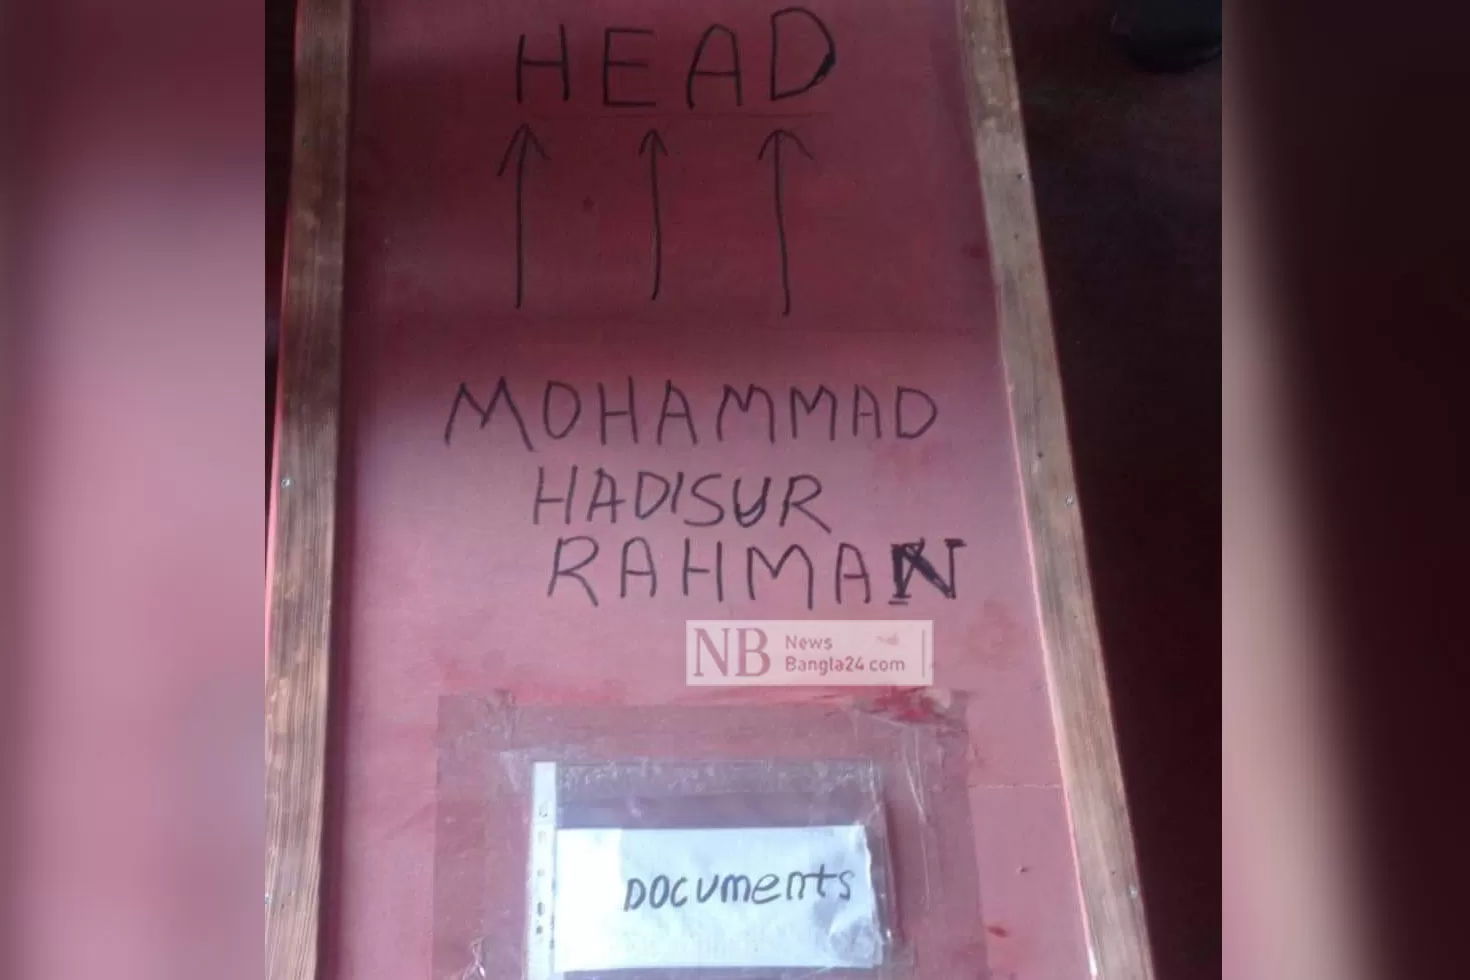 HEAD
MOHAMMAD
HADISUR
RAHMAN
NB News
Bangla24.com
DOCUMENTS